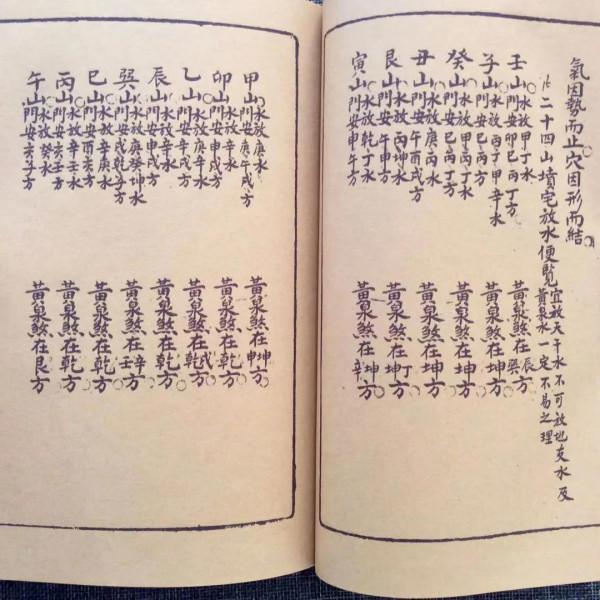 氣因勢而止穴因形而結
二十四山墳宅放水便覧 宜放天干水不可放地支水及黃泉水一定不易之理
壬山水放甲丁水門安卯巳丙丁方 黃泉煞在辰巽方
子山水放丙丁甲辛水門安巳丙方 黃泉煞在坤方
癸山水放甲丙丁水門安巳丙丁方 黃泉煞在坤方
丑山水放庚丙水門安酉戌方 黃泉煞在坤方
艮山水放丙坤水門安午申方 黃泉煞在坤丁方
寅山水放乾丁水門安申午方 黃泉煞在坤辛方
甲山水放庚水門安庚午戌方 黃泉煞在坤申方
卯山水放辛水門安申戌方 黃泉煞在乾方
乙山水放庚辛水門安辛戌方 黃泉煞在戌乾方
辰山水放辛水門安申戌方 黃泉煞在乾方
巽山水放庚癸坤水門安戌乾子方 黃泉煞在辛壬方
巳山水放辛庚水門安酉亥方 黃泉煞在乾方
丙山水放辛壬水門安癸壬方 黃泉煞在乾方
午山水放癸水門安亥子方 黃泉煞在艮方